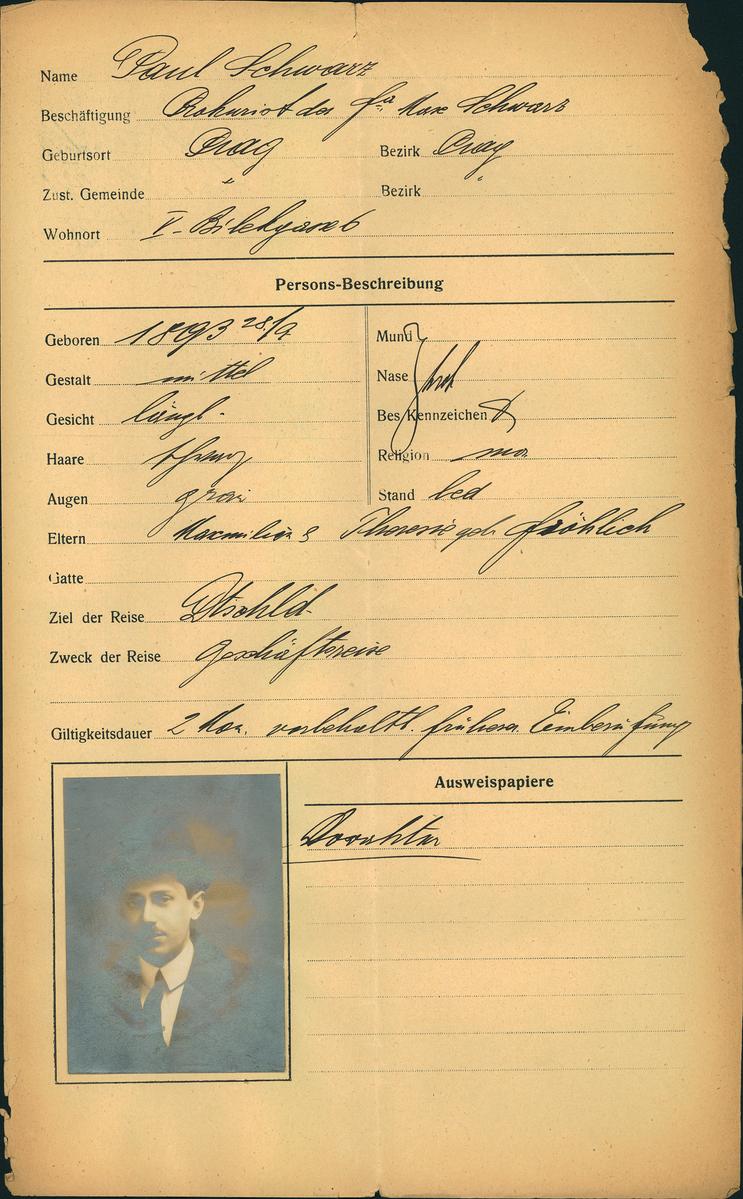 Name Paul Schwarz
Beschäftigung Prokurist der Fa. Max Schwarz
Geburtsort Prag Bezirk Prag
Zust. Gemeinde " Bezirk "
Wohnort V- Bilekgasse 6
Persons-Beschreibung
Geboren 1893 28/9 Mund
Gestalt mittel Nase
Gesicht längl. Bes Kennzeichen
Haare schwarz Religion mos.
Augen grau Stand led
Eltern Maxmilian & Theresie geb. Fröhlich
Gatte
Ziel der Reise Dtschld.
Zweck der Reise Geschäftsreise
Giltigkeitsdauer 2 Mon. vorbehaltl. früherer Einberufung
Ausweispapiere